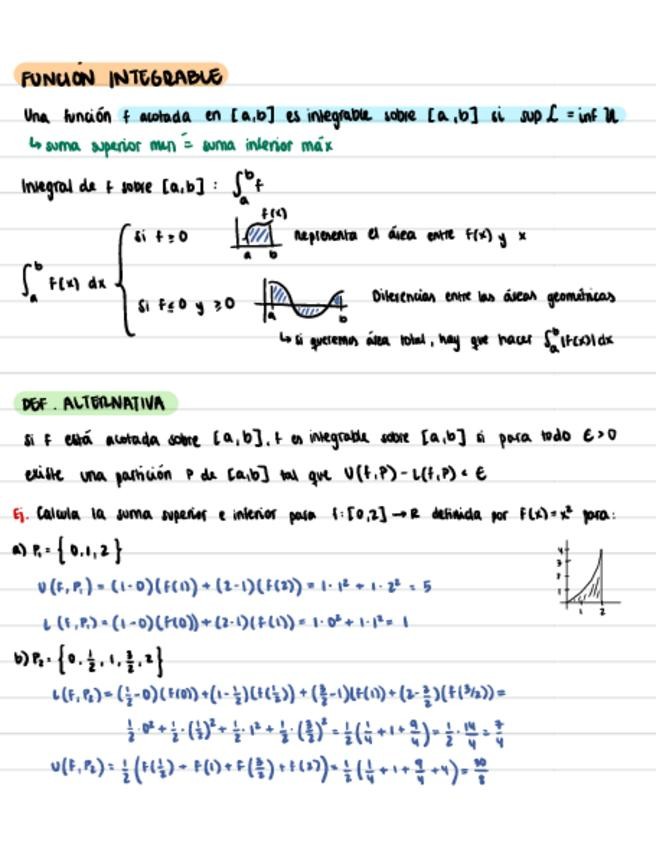 FUNCIÓN INTEGRABLE
Una función f acotada en [a,b] es integrable sobre [a,b] si sup L = inf U
↳ suma superior min = suma inferior máx
Integral de f sobre [a,b] : ∫ₐᵇ f
f(x)
Si f ≥ 0
a b
Representa el área entre f(x) y x
∫ₐᵇ f(x) dx
Si f ≤ 0 y ≥ 0
a b
Diferencias entre las áreas geométricas
↳ si queremos área total, hay que hacer ∫ₐᵇ |f(x)| dx
DEF. ALTERNATIVA
Si f está acotada sobre [a,b], f es integrable sobre [a,b] si para todo ε>0
existe una partición P de [a,b] tal que U(f,P) - L(f,P) < ε
Ej. Calcula la suma superior e inferior para f:[0,2] → R definida por f(x) = x² para:
a) P₁ = {0,1,2}
U(f,P₁) = (1-0)(f(1)) + (2-1)(f(2)) = 1·1² + 1·2² = 5
L(f,P₁) = (1-0)(f(0)) + (2-1)(f(1)) = 1·0² + 1·1² = 1
4
3
2
1
1 2
b) P₂ = {0, 1/2, 1, 3/2, 2}
L(f,P₂) = (1/2-0)(f(0)) + (1-1/2)(f(1/2)) + (3/2-1)(f(1)) + (2-3/2)(f(3/2)) =
1/2·0² + 1/2·(1/2)² + 1/2·1² + 1/2·(3/2)² = 1/2(1/4+1+9/4) = 1/2·14/4 = 7/4
U(f,P₂) = 1/2(f(1/2) + f(1) + f(3/2) + f(2)) = 1/2(1/4+1+9/4+4) = 30/8